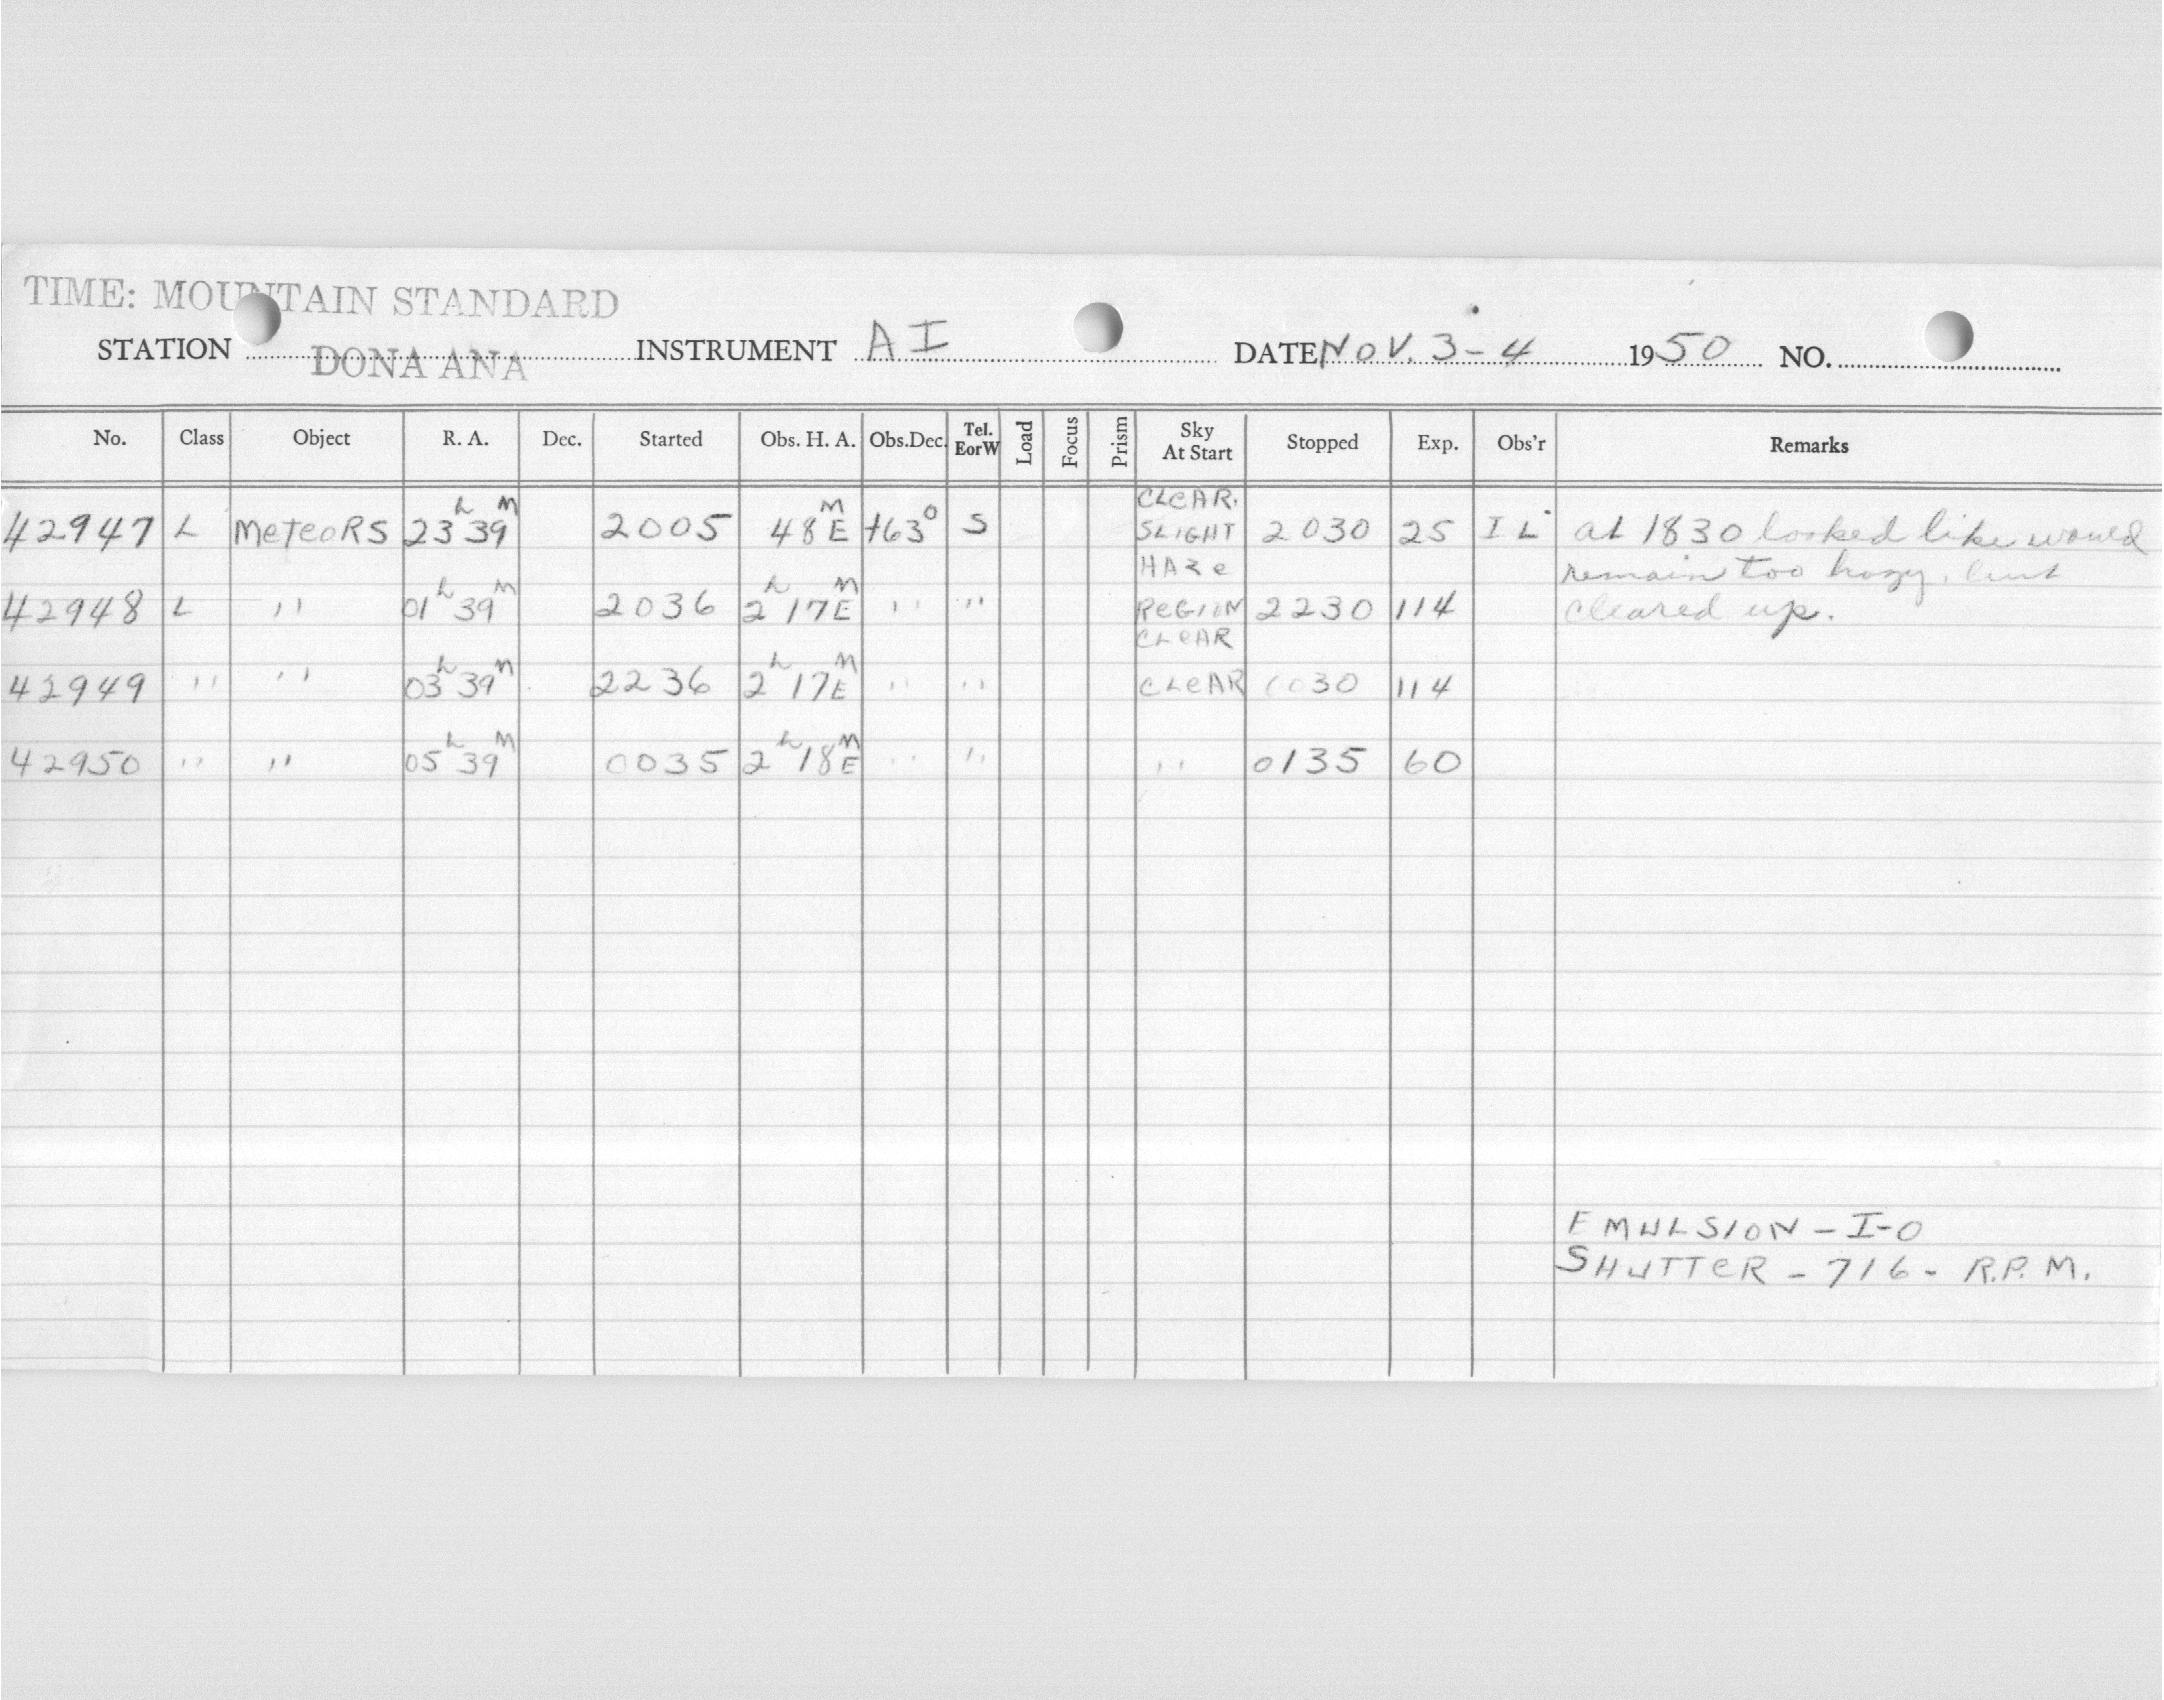 TIME: MOUNTAIN STANDARD
STATION DONA ANA INSTRUMENT AI DATE NOV. 3-4 1950 NO.
No. Class Object R. A. Dec. Started Obs. H. A. Obs.Dec. Tel. EorW Load Focus Prism Sky At Start Stopped Exp. Obs'r Remarks
42947 L MeteoRS 23h 39M 2005 48M E +63° S CLeAR. SLIGHT HAZe 2030 25 IL at 1830 looked like would
remain too hazy, but
42948 L " 01h 39M 2036 2h 17M E " " ReGION CLeAR 2230 114 cleared up.
42949 " " 03h 39M 2236 2h 17M E " " CLeAR 0030 114
42950 " " 05h 39M 0035 2h 18M E " " " 0135 60
EMULSION - I-O
SHUTTeR - 716 - R.P.M.